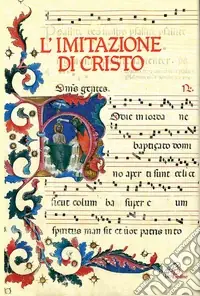 L'IMITAZIONE
DI CRISTO
omnes gentes.
odie in iorda ne
baptizato domi
no aper ti sunt celi et
sicut columba super e um
spiritus man sit et vox patris in to